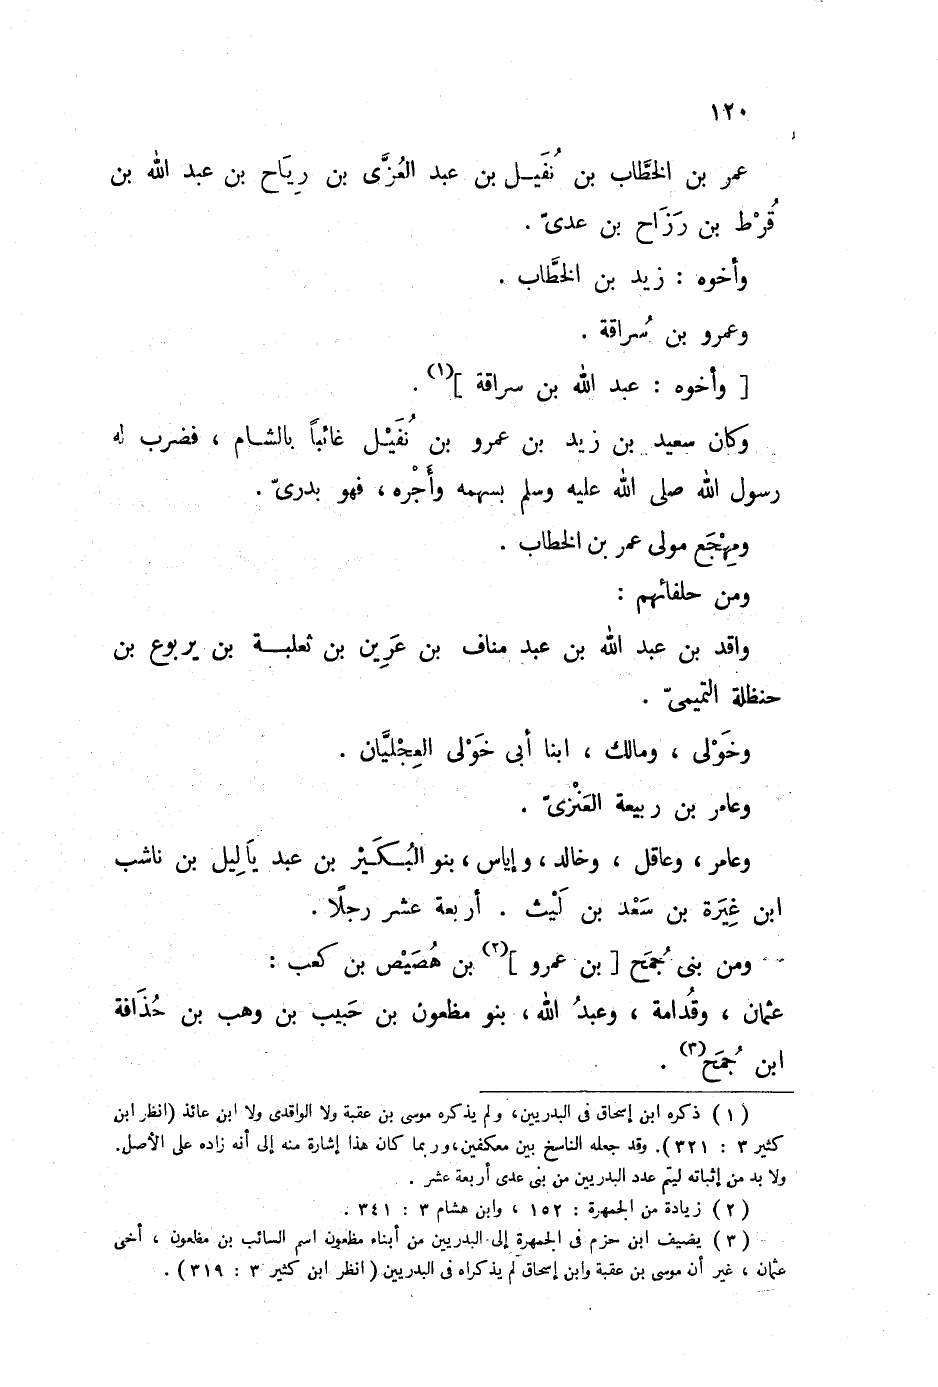 ١٢٠
عمر بن الخطَّاب بن نُفَيـل بن عبد العُزَّى بن رِيَاح بن عبد الله بن
قُرْط بن رَزَاح بن عدىّ .
وأخوه : زيد بن الخطَّاب .
وعمرو بن سُراقة .
[ وأخوه : عبد الله بن سراقة ](١) .
وكان سعيد بن زيد بن عمرو بن نُفَيْل غائباً بالشـام ، فضرب له
رسول الله صلى الله عليه وسلم بسهمه وأَجْره ، فهو بدرىّ .
ومِهْجَع مولى عمر بن الخطاب .
ومن حلفائهم :
واقد بن عبد الله بن عبد مناف بن عَرِين بن ثعلبـــة بن يربوع بن
حنظلة التميمىّ .
وخَوْلى ، ومالك ، ابنا أبى خَوْلى العِجْليَّان .
وعامر بن ربيعة العَنْزىّ .
وعامر ، وعاقل ، وخالد ، وإياس ، بنو البُـكَـيْر بن عبد يَالِيل بن ناشب
ابن غِيَرة بن سَعْد بن لَيْث . أربعة عشر رجلًا .
ومن بنى جُمَح [ بن عمرو ](٢) بن هُصَيْص بن كعب :
عثمان ، وقُدامة ، وعبدُ الله ، بنو مظعون بن حَبيب بن وهب بن حُذَافة
ابن جُمَح(٣) .
(١) ذكره ابن إسحاق فى البدريين، ولم يذكره موسى بن عقبة ولا الواقدى ولا ابن عائذ (انظر ابن
كثير ٣ : ٣٢١). وقد جعله الناسخ بين معكفين، وربما كان هذا إشارة منه إلى أنه زاده على الأصل.
ولا بد من إثباته ليتم عدد البدريين من بنى عدى أربعة عشر .
(٢) زيادة من الجمهرة : ١٥٢ ، وابن هشام ٣ : ٣٤١ .
(٣) يضيف ابن حزم فى الجمهرة إلى البدريين من أبناء مظعون اسم السائب بن مظعون ، أخى
عثمان ، غير أن موسى بن عقبة وابن إسحاق لم يذكراه فى البدريين ( انظر ابن كثير ٣ : ٣١٩ ) .